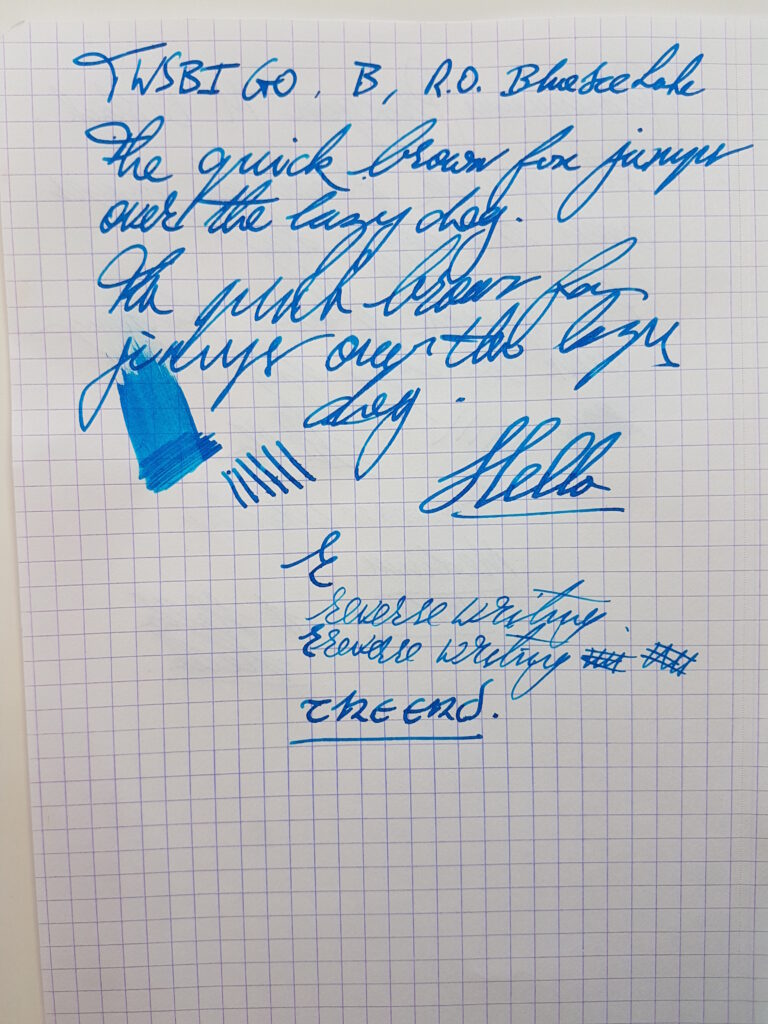 TWSBI GO, B, R.O. Blue
The quick brown fox jumps
over the lazy dog.
The quick brown fox
jumps over the lazy
dog.
Hello
E
reverse writing
Ereverse writing
THE END.